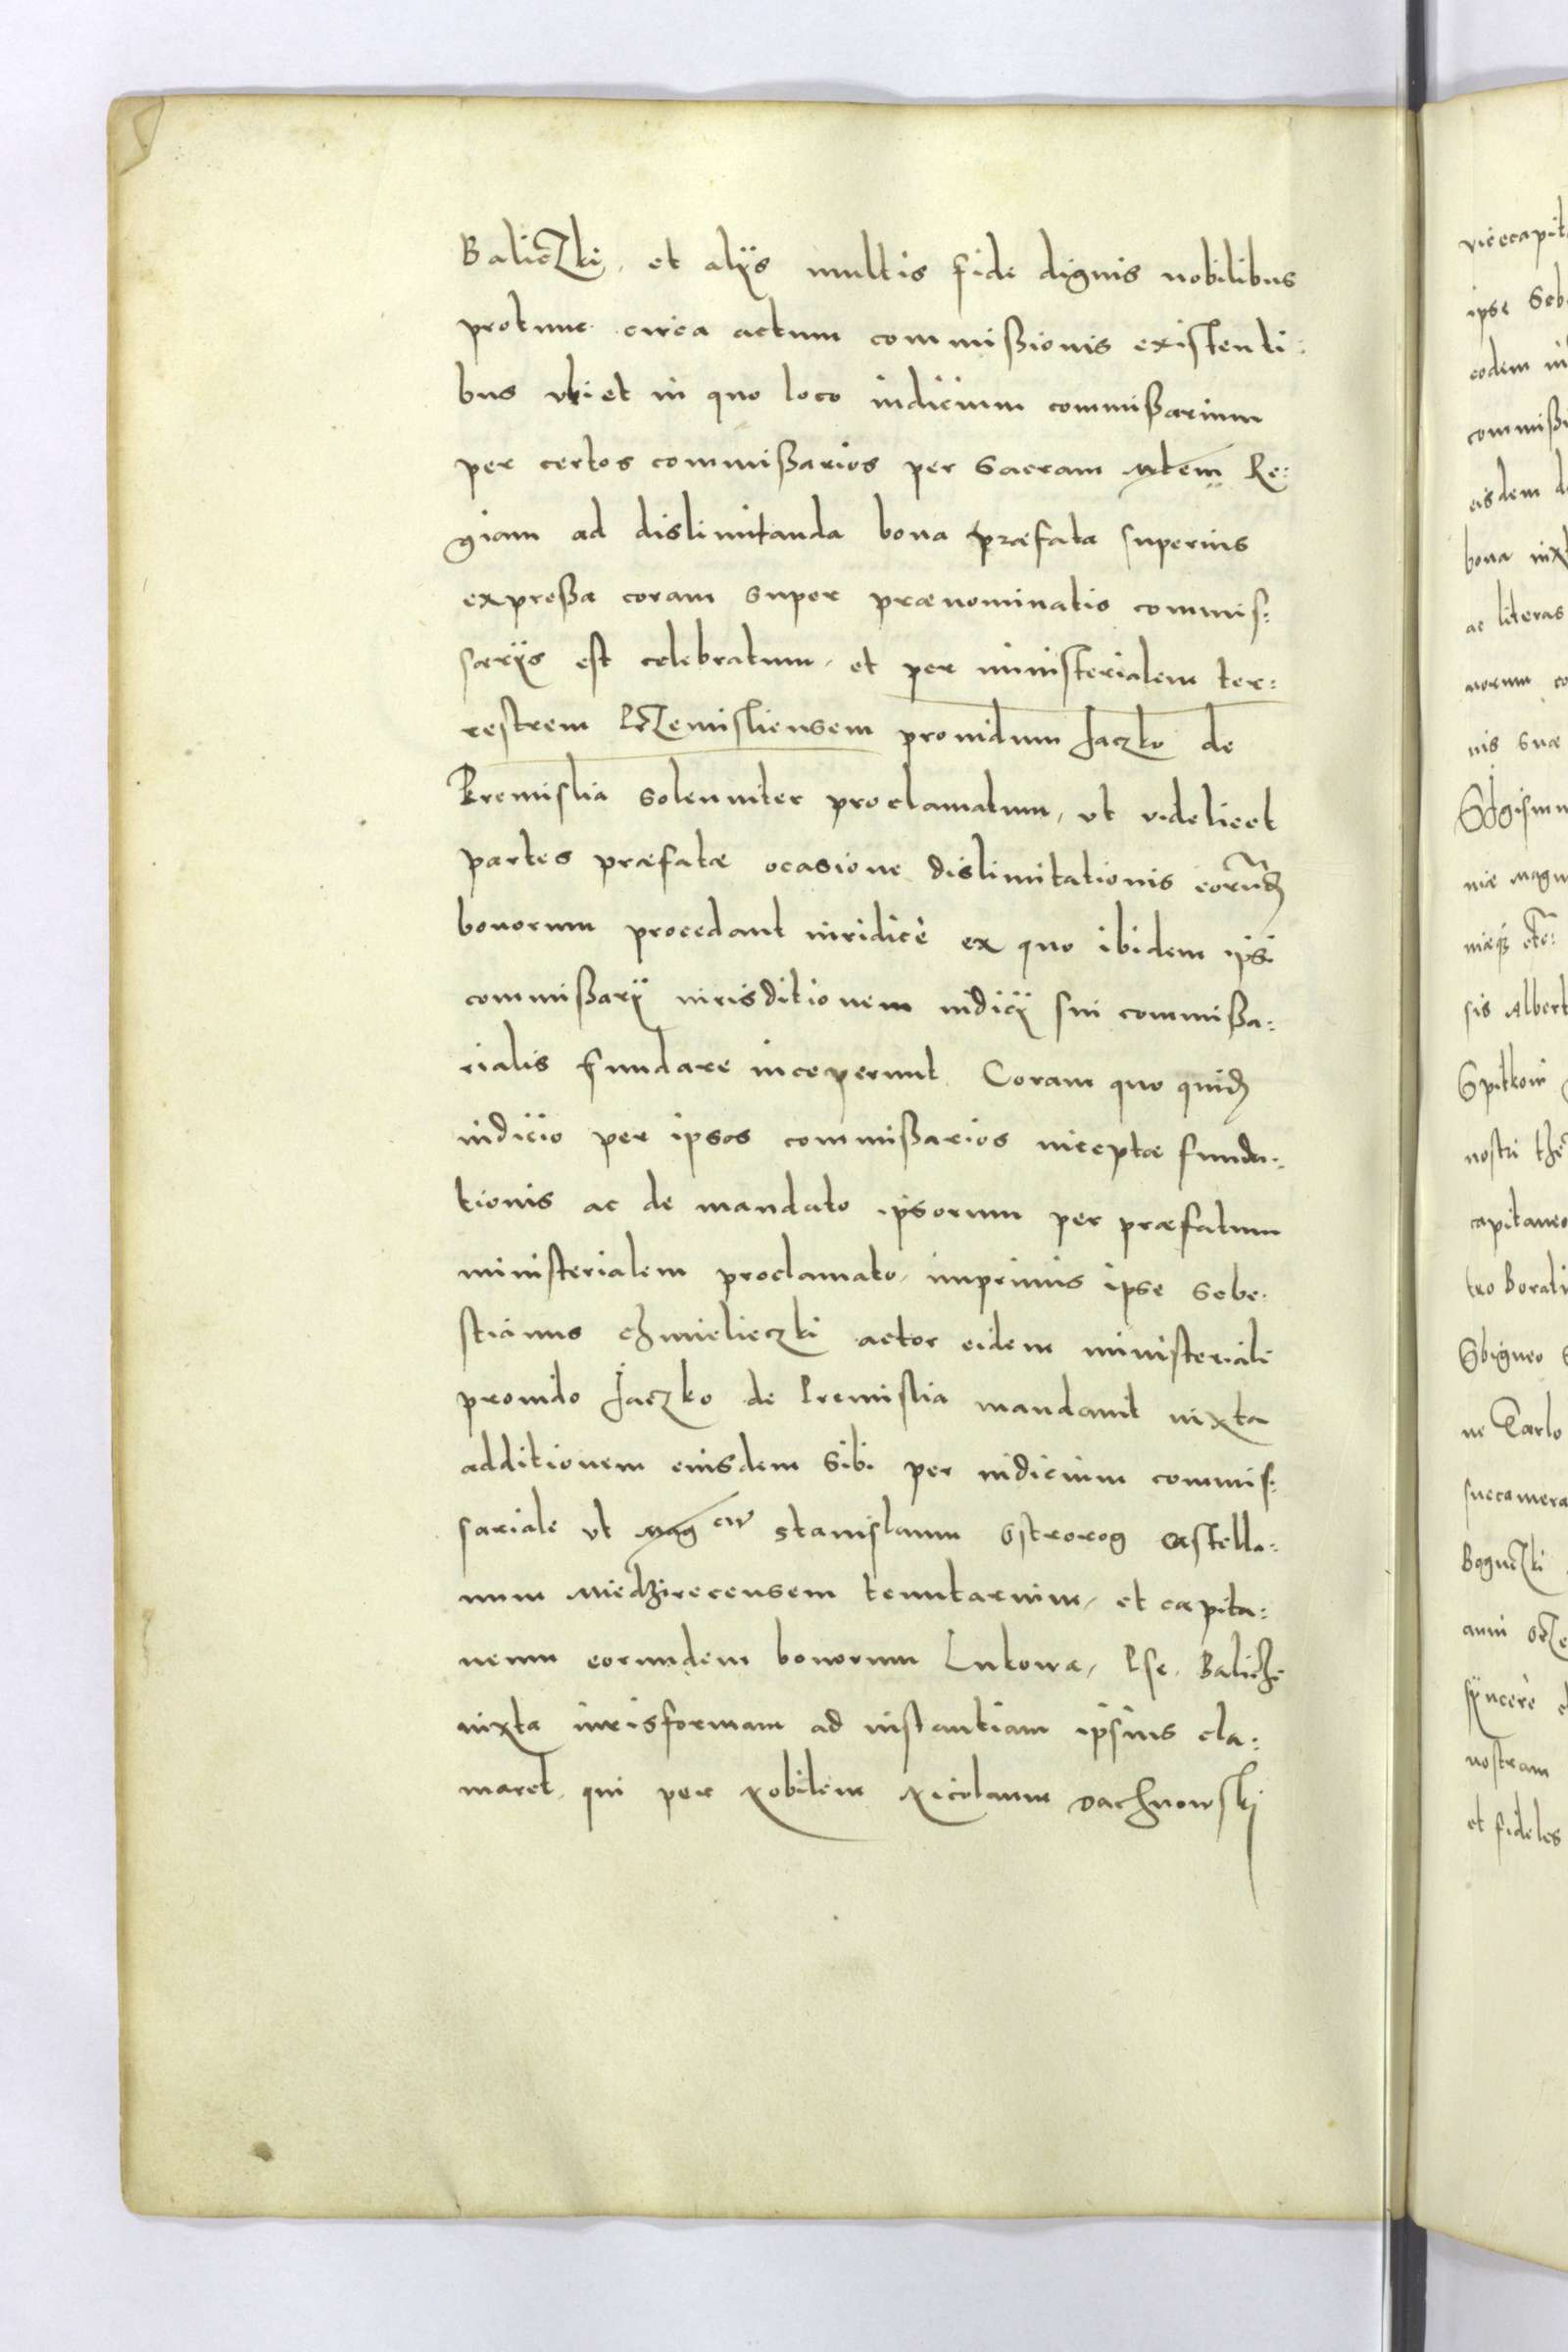 Baliczki, et alÿs multis fide dignis nobilibus
protunc circa actum commißionis existenti:
bus ubi et in quo loco iudicium commißarium
per certos commißarios per Sacram Mtem Re:
giam ad dislimitanda bona præfata superius
expreßa coram super prænominatis commis:
sarÿs est celebratum, et per ministerialem ter:
restrem Przemisliensem providum Jaczko de
Premislia solenniter proclamatum, ut videlicet
partes præfatæ ocasione dislimitationis eorundem
bonorum procedant iuridicè ex quo ibidem ipsi
commißarÿ iurisditionem iudicÿ sui commißa:
rialis fundare inceperunt. Coram quo quidem
iudicio per ipsos commißarios inceptæ funda:
tionis ac de mandato ipsorum per præfatum
ministerialem proclamato, imprimis ipse Seba:
stianus Chmieliczki actor eidem ministeriali
provido Jaczko de Premislia mandavit iuxta
additionem eiusdem sibi per iudicium commis:
sariale ut Mag cum Stanislaum Ostrorog castella:
num Miedzirecensem tenutarium, et capita:
neum eorundem bonorum Lukowa, Pse. Baliche
iuxta iurisformam ad instantiam ipsius cla:
maret, qui per Nobilem Nicolaum Dachnowski
vicecapit
ipse Seb
eodem
commißi
eisdem
bona iuxt
ac literas
norum co
nis suæ
Sigismu
niæ magn
niæq; etc:
sis Albert
Spitkow
nostri
capitaneo
tro Borati
Sbigneo
ne Tarlo
succamera
anni
syncere
nostram
et fideles